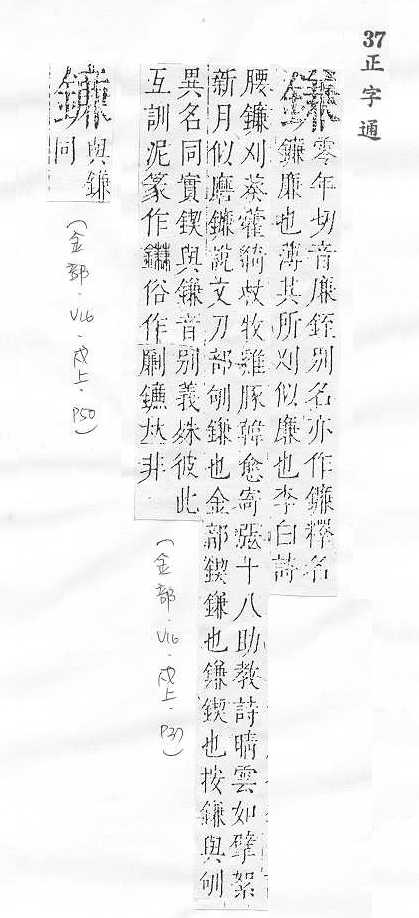 37 正字通
鎌
零年切音廉銍別名亦作鐮釋名
鐮廉也薄其所刈似廉也李白詩
腰鐮刈葵藿騎杖牧雞豚韓愈寄張十八助教詩晴雲如擘絮
新月似磨鐮說文刀部鎌也金部鍥鎌也鎌鍥也按鎌與
異名同實鍥與鎌音別義殊彼此
互訓泥篆作俗作劆𠀤非
(金部.V16.戌上.P37)
鐮
與鎌
同
(金部.V16.戌上.P50)